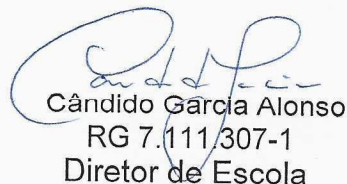 Cândido Garcia Alonso
RG 7.111.307-1
Diretor de Escola